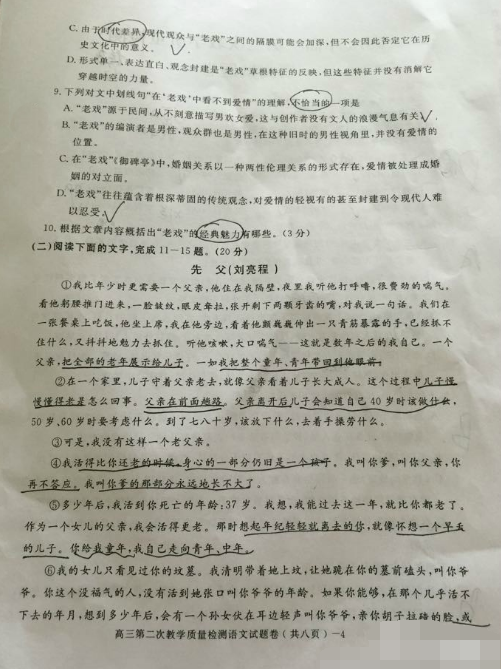 C. 由于时代差异,现代观众与“老戏”之间的隔膜可能会加深,但不会因此否定它在历
史文化中的意义。
D. 形式单一、表达直白、观念封建是“老戏”草根特征的反映,但这些特征并没有消解它
穿越时空的力量。
9. 下列对文中划线句“在‘老戏’中看不到爱情”的理解,不恰当的一项是
A. “老戏”源于民间,从不刻意描写男欢女爱,这与创作者没有文人的浪漫气息有关。
B. “老戏”的编演者是男性,观众群也是男性,在这种旧时的男性视角里,并没有爱情的
位置。
C. 在“老戏”《御碑亭》中,婚姻关系以一种两性伦理关系的形式存在,爱情被处理成婚
姻的对立面。
D. “老戏”往往蕴含着根深蒂固的传统观念,对爱情的轻视有的甚至封建到令现代人难
以忍受。
10. 根据文章内容概括出“老戏”的经典魅力有哪些。(3分)
(二)阅读下面的文字,完成11—15题。(20分)
先 父(刘亮程)
①我比年少时更需要一个父亲,他住在我隔壁,夜里我听他打呼噜,很费劲的喘气。
看他躬腰推门进来,一脸皱纹,眼皮耷拉,张开剩下两颗牙齿的嘴,对我说一句话。我们在
一张餐桌上吃饭,他坐上席,我在他旁边,看着他颤巍巍伸出一只青筋暴露的手,已经抓不
住什么,又抖抖地勉力去抓住。听他咳嗽,大口喘气——这就是数年之后的我自己。一个
父亲,把全部的老年展示给儿子。一如我把整个童年、青年带回到他眼前。
②在一个家里,儿子守着父亲老去,就像父亲看着儿子长大成人。这个过程中儿子慢
慢懂得老是怎么回事。父亲在前面趟路。父亲离开后儿子会知道自己40岁时该做什么,
50岁、60岁时要考虑什么。到了七八十岁,该放下什么,去着手操劳什么。
③可是,我没有这样一个老父亲。
④我活得比你还老的时候,身心的一部分仍旧是一个孩子。我叫你爹,叫你父亲,你
再不答应。我叫你爹的那部分永远地长不大了。
⑤多少年后,我活到你死亡的年龄:37岁。我想,我能过去这一年,就比你都老了。
作为一个女儿的父亲,我会活得更老。那时想起年纪轻轻就离去的你,就像怀想一个早夭
的儿子。你给我童年,我自己走向青年、中年。
⑥我的女儿只看见过你的坟墓。我清明带着她上坟,让她跪在你的墓前磕头,叫你爷
爷。你这个没福气的人,没有活到她张口叫你爷爷的年龄。如果你能够,在那个几乎活不
下去的年月,想到多少年后,会有一个孙女伏在耳边轻声叫你爷爷,亲你胡子拉碴的脸,或
高三第二次教学质量检测语文试题卷(共八页)—4